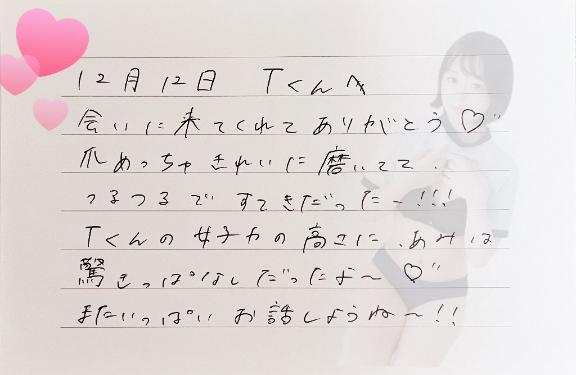 12月12日 Tくんへ
会いに来てくれてありがとう♡
爪めっちゃきれいに磨いてて、
つるつるですてきだった~!!!
Tくんの女子力の高さに、あみは
驚きっぱなしだったよ~♡
またいっぱいお話しようね~!!